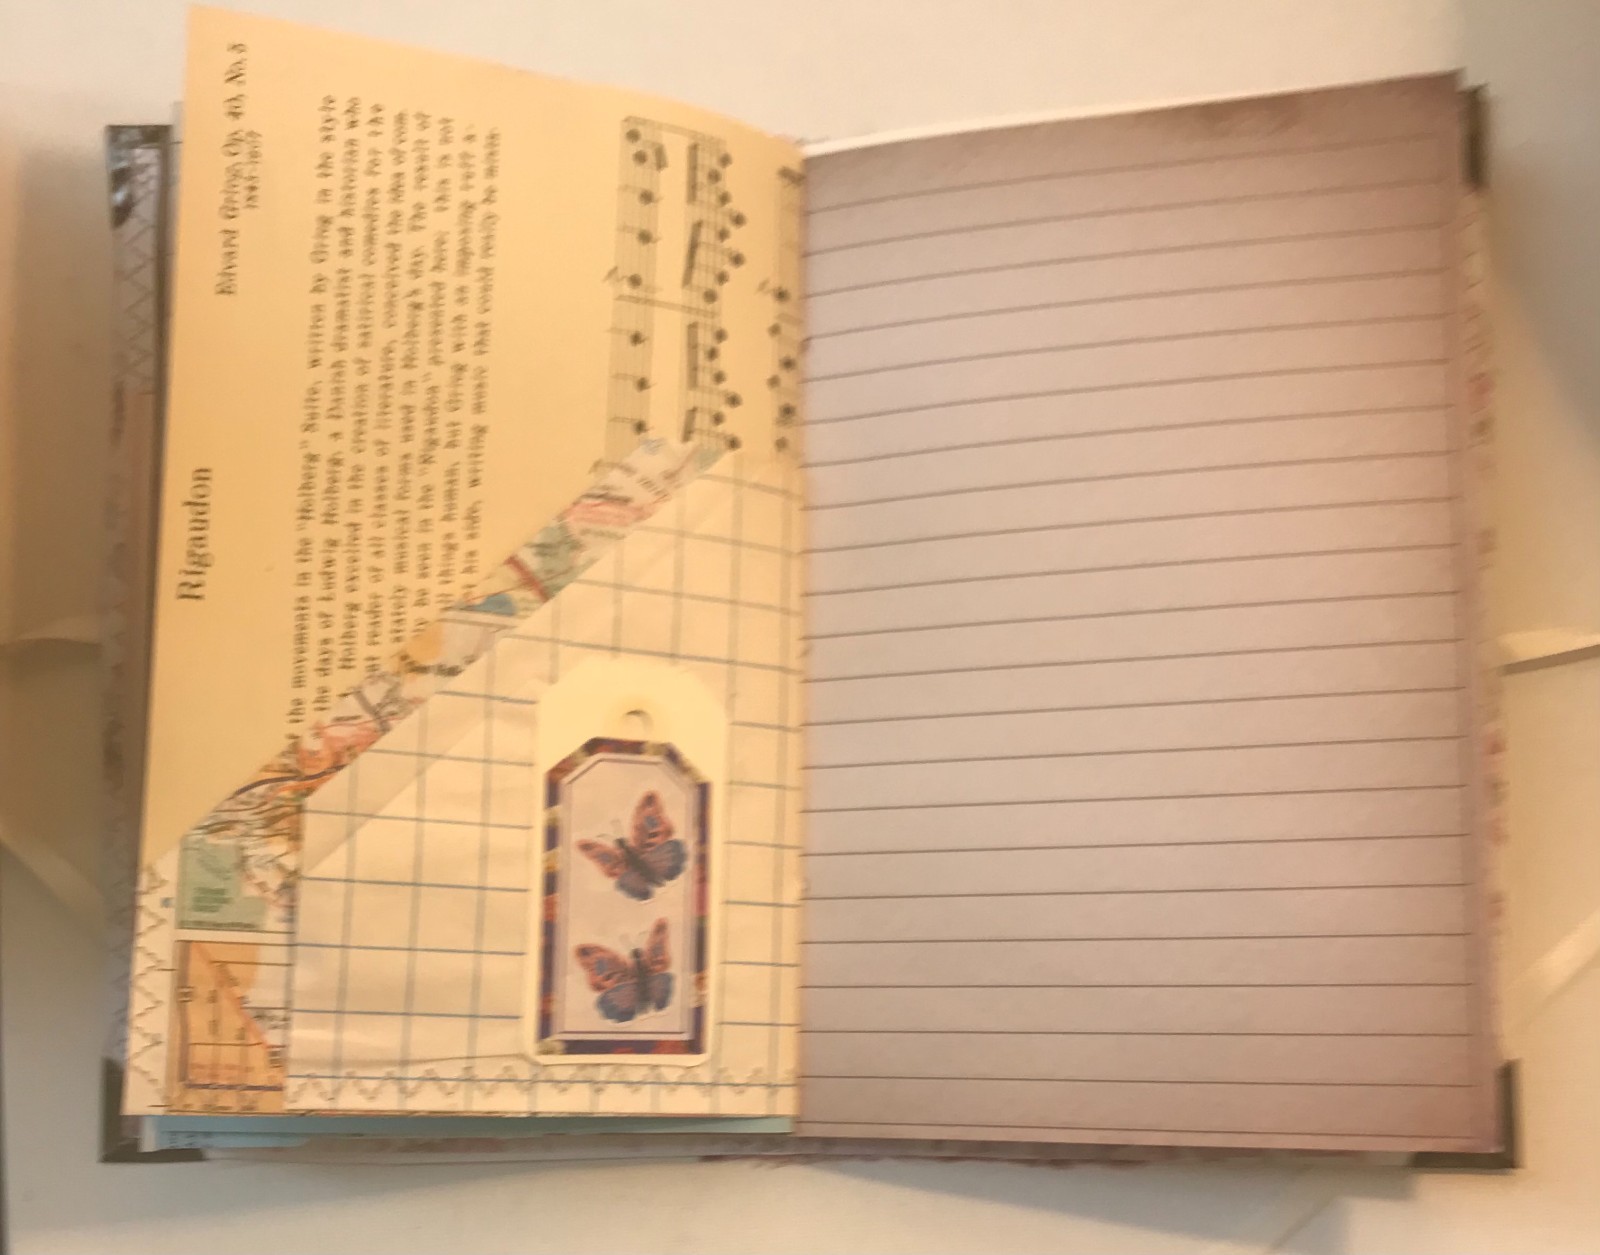 Rigaudon
Edvard Grieg, Op. 40, No. 5
1843-1907
the movements in the "Holberg" Suite, written by Grieg in the style
the days of Ludwig Holberg, a Danish dramatist and historian who
Holberg excelled in the creation of satirical comedies for the
reader of all classes of literature, conceived the idea of com-
stately musical forms used in Holberg's day. The result of
be seen in the "Rigaudon" presented here; this is not
all things human, but Grieg with an imposing ruff a-
his side, writing music that could really be mean-